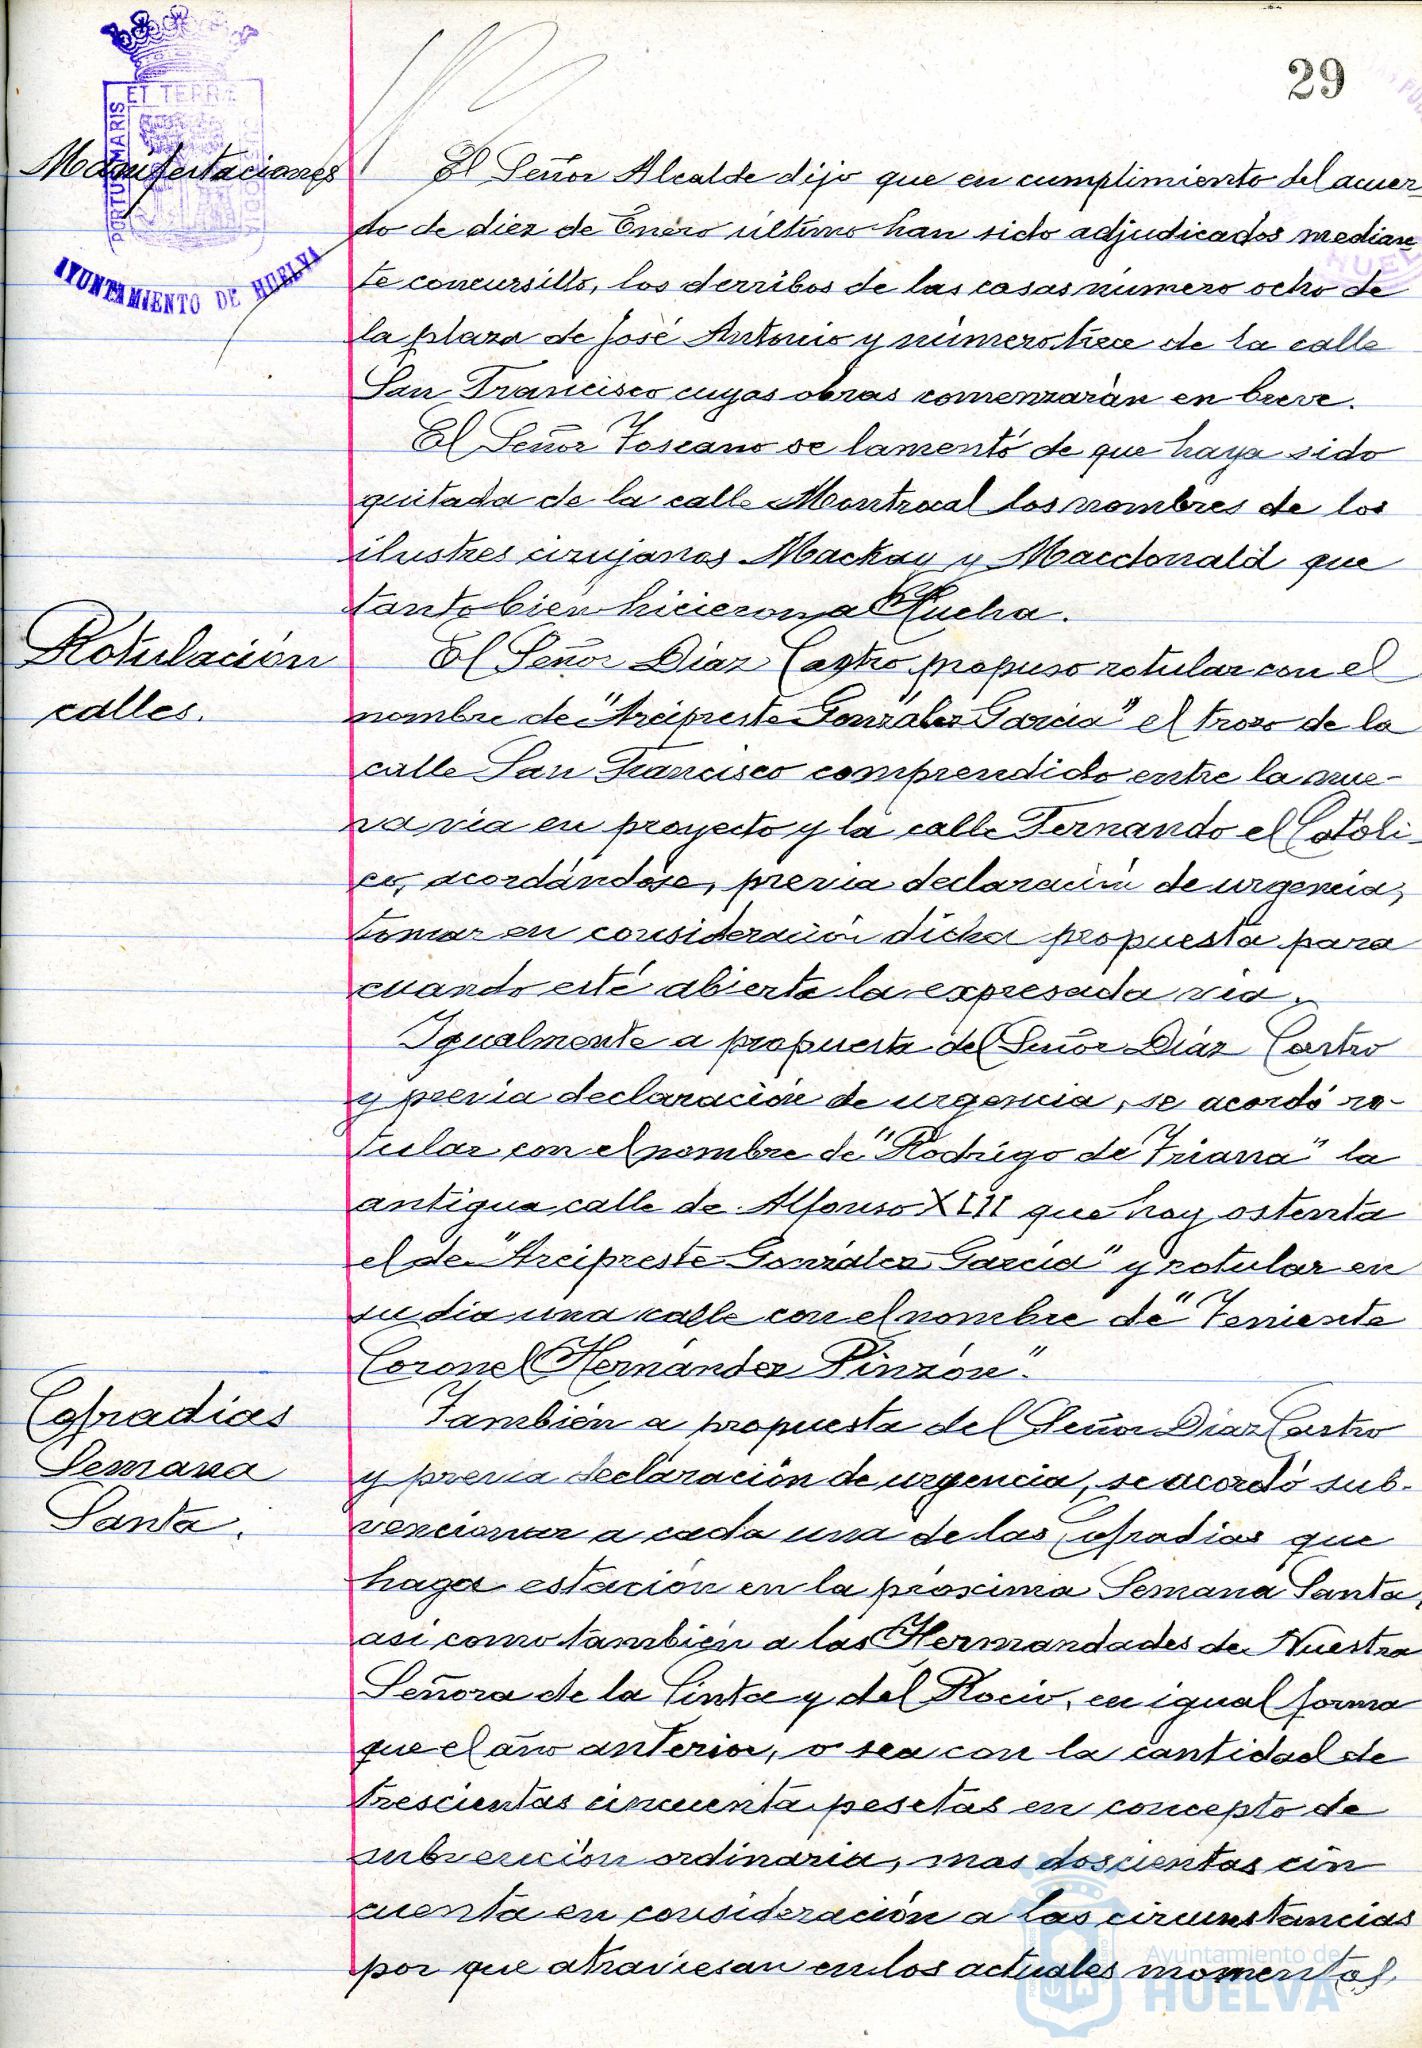 29
ET TERRÆ
PORTUS MARIS
AYUNTAMIENTO DE HUELVA
Manifestaciones
El Señor Alcalde dijo que en cumplimiento del acuer-
do de diez de Enero último han sido adjudicados median
te concursillo, los derribos de las casas número ocho de
la plaza de José Antonio y número trece de la calle
San Francisco cuyas obras comenzarán en breve.
El Señor Toscano se lamentó de que haya sido
quitada de la calle Montrocal los nombres de los
ilustres cirujanos Mackay y Macdonald que
tanto bien hicieron a Huelva.
Rotulación
calles.
El Señor Diaz Castro propuso rotular con el
nombre de "Arcipreste González Garcia" el trozo de la
calle San Francisco comprendido entre la nue-
va via en proyecto y la calle Fernando el Católi-
co, acordándose, previa declaración de urgencia,
tomar en consideración dicha propuesta para
cuando esté abierta la expresada via.
Igualmente a propuesta del Señor Diaz Castro
y previa declaración de urgencia, se acordó ro-
tular con el nombre de "Rodrigo de Triana" la
antigua calle de Alfonso XIII que hoy ostenta
el de "Arcipreste González Garcia" y rotular en
su dia una calle con el nombre de "Teniente
Coronel Hernández Pinzón".
Cofradias
Semana
Santa.
También a propuesta del Señor Diaz Castro
y previa declaración de urgencia, se acordó sub-
vencionar a cada una de las Cofradias que
haga estación en la próxima Semana Santa,
asi como también a las Hermandades de Nuestra
Señora de la Cinta y del Rocio, en igual forma
que el año anterior, o sea con la cantidad de
trescientas cincuenta pesetas en concepto de
subvención ordinaria, mas doscientas cin
cuenta en consideración a las circunstancias
por que atraviesan en los actuales momentos,
Ayuntamiento de
HUELVA